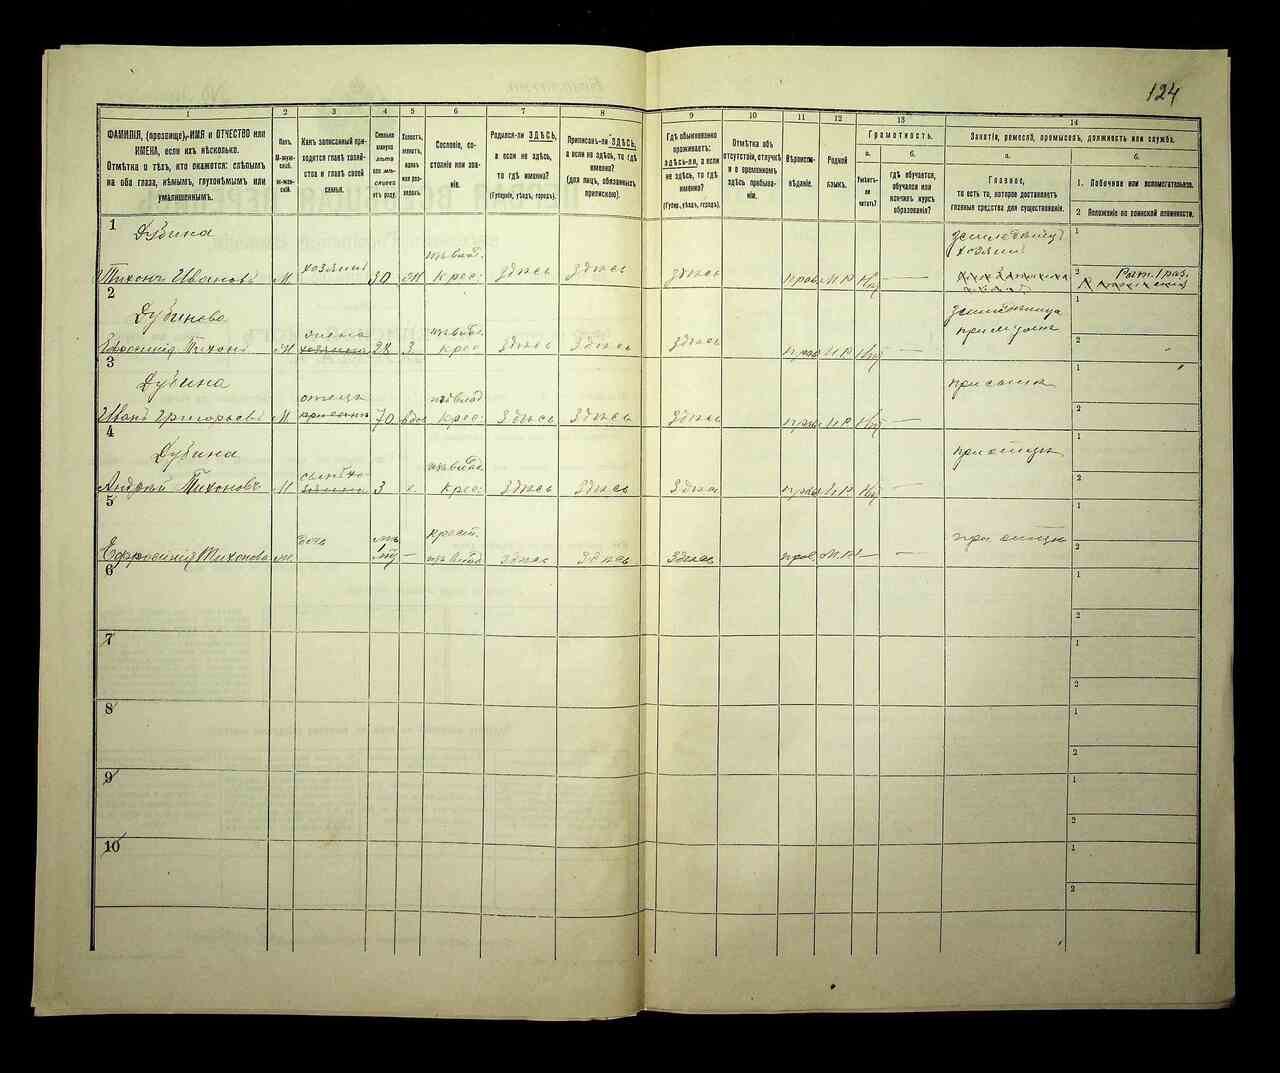 124
1
2
3
4
5
6
7
8
9
10
11
12
13
14
ФАМИЛІЯ, (прозвище), ИМЯ и ОТЧЕСТВО или
ИМЕНА, если ихъ нѣсколько.
Отмѣтка о тѣхъ, кто окажется: слѣпымъ
на оба глаза, нѣмымъ, глухонѣмымъ или
умалишеннымъ.
Полъ.
М-муж-
ской.
Ж-жен-
скій.
Какъ записанный при-
ходится главѣ хозяй-
ства и главѣ своей
семьи.
Сколько
минуло
лѣтъ
или мѣ-
сяцевъ
отъ роду.
Холостъ,
женатъ,
вдовъ
или раз-
веденъ.
Сословіе, со-
стояніе или зва-
ніе.
Родился-ли ЗДѢСЬ,
а если не здѣсь,
то гдѣ именно?
(Губернія, уѣздъ, городъ).
Приписанъ-ли ЗДѢСЬ,
а если не здѣсь, то гдѣ
именно?
(для лицъ, обязанныхъ
припискою).
Гдѣ обыкновенно
проживаетъ:
ЗДѢСЬ-ли, а если
не здѣсь, то гдѣ
именно?
(Губер., уѣздъ, городъ).
Отмѣтка объ
отсутствіи, отлучкѣ
и о временномъ
здѣсь пребыва-
ніи.
Вѣроиспо-
вѣданіе.
Родной
языкъ.
Грамотность.
а.
Умѣетъ-
ли
читать?
б.
гдѣ обучается,
обучался или
кончилъ курсъ
образованія?
Занятіе, ремесло, промыселъ, должность или служба.
а.
Главное,
то есть то, которое доставляетъ
главныя средства для существованія.
б.
1. Побочное или вспомогательное.
2 Положеніе по воинской повинности.
1
Дубина
Тихонъ Ивановъ М хозяинъ 30 Ж изъ влад. крес: здѣсь здѣсь здѣсь прав М Р Нѣт —
земледѣлецъ
хозяинъ
1
2 Ратн. 1 раз.
2
Дубинова
Ефросинія Тихон Ж жена 28 З изъ влад. крес здѣсь здѣсь здѣсь прав М Р Нѣт —
при мужѣ
1
2
3
Дубина
Иванъ Григорьевъ М отецъ 70 вдов изъ влад крес: Здѣсь Здѣсь Здѣсь прав М Р Нѣт —
при сынѣ
1
2
4
Дубина
Андрей Тихоновъ М сынъ 3 х. изъ влад крес: Здѣсь Здѣсь Здѣсь прав М Р Нѣт
при отцѣ
1
2
5
Ефросинія Тихонова ж. дочь — крест. изъ влад Здѣсь Здѣсь Здѣсь прав М. Р. — —
при отцѣ
1
2
6
1
2
7
1
2
8
1
2
9
1
2
10
1
2